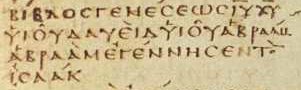 ΒΙΒΛΟΣΓΕΝΕΣΕΩΣΙΥΧΥ
ΥΙΟΥΔΑΥΕΙΔΥΙΟΥΑΒΡΑΑΜ
ΑΒΡΑΑΜΕΓΕΝΝΗΣΕΝΤ
ΙΣΑΑΚ